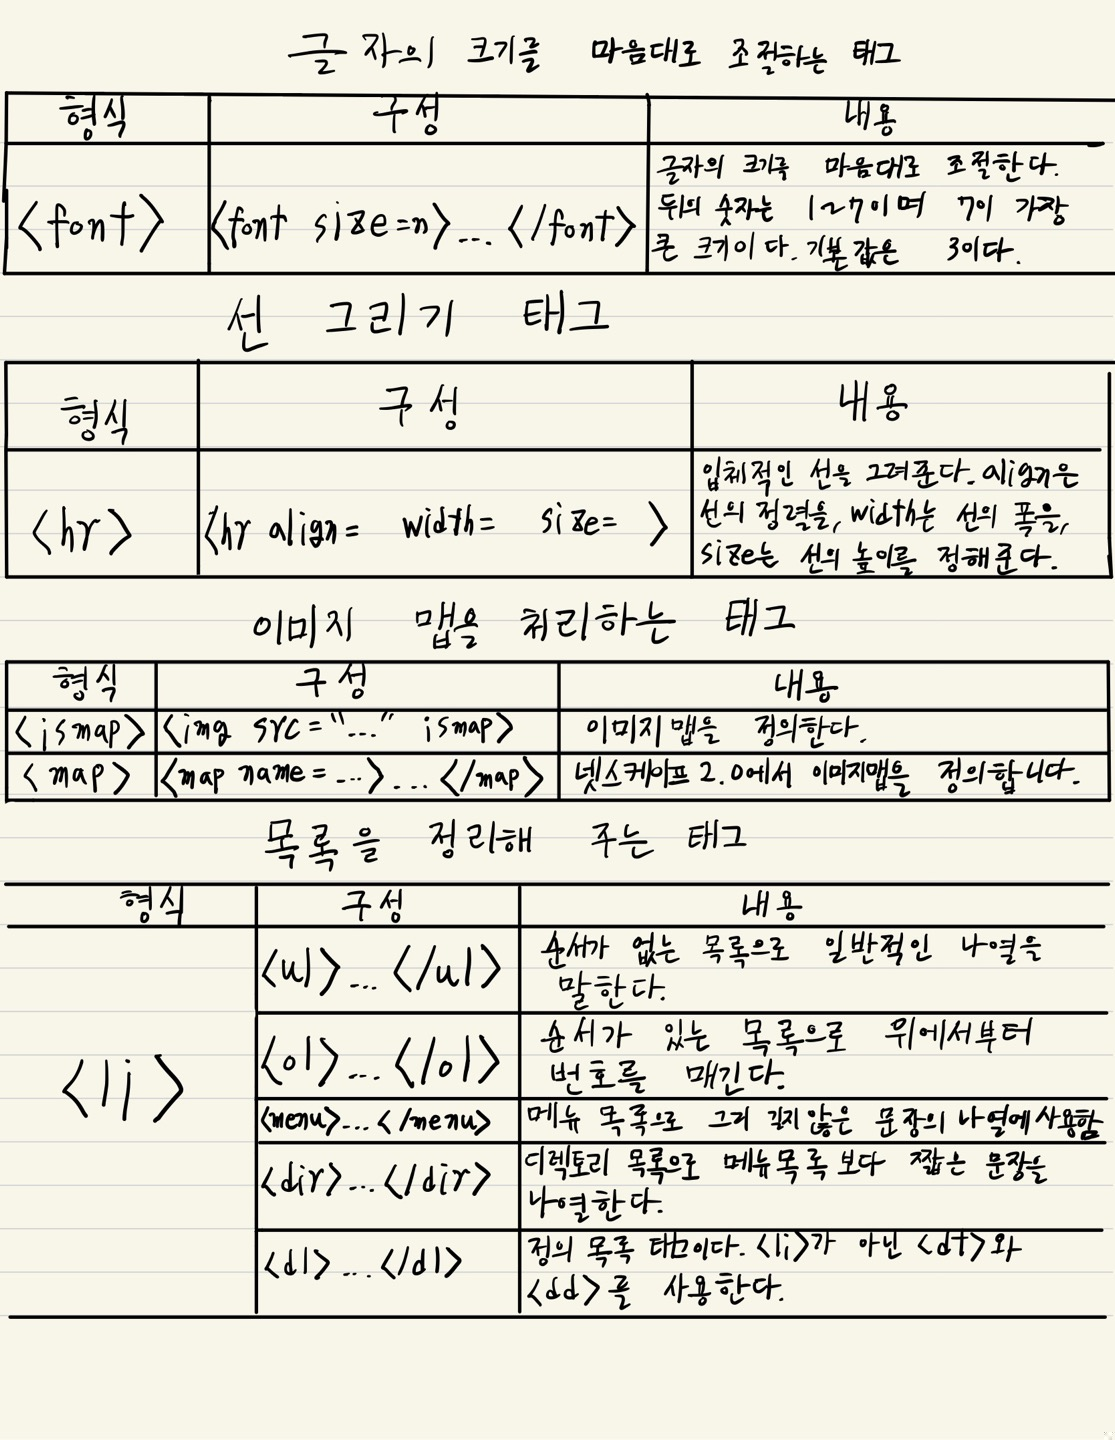 글자의 크기를 마음대로 조절하는 태그
형식 구성 내용
<font> <font size=n>... </font> 글자의 크기를 마음대로 조절한다.
뒤의 숫자는 1~7이며 7이 가장
큰 크기이다. 기본값은 3이다.
선 그리기 태그
형식 구성 내용
<hr> <hr align= width= size= > 입체적인 선을 그려준다. align은
선의 정렬을, width는 선의 폭을,
size는 선의 높이를 정해준다.
이미지 맵을 처리하는 태그
형식 구성 내용
<ismap> <img src="..." ismap> 이미지맵을 정의한다.
<map> <map name=...>... </map> 넷스케이프 2.0에서 이미지맵을 정의합니다.
목록을 정리해 주는 태그
형식 구성 내용
<li>
<ul>... </ul> 순서가 없는 목록으로 일반적인 나열을
말한다.
<ol>... </ol> 순서가 있는 목록으로 위에서부터
번호를 매긴다.
<menu>...</menu> 메뉴 목록으로 그리 길지않은 문장의 나열에사용함
<dir>...</dir> 디렉토리 목록으로 메뉴목록보다 짧은 문장을
나열한다.
<dl>...</dl> 정의 목록 태그이다. <li>가 아닌 <dt>와
<dd>를 사용한다.